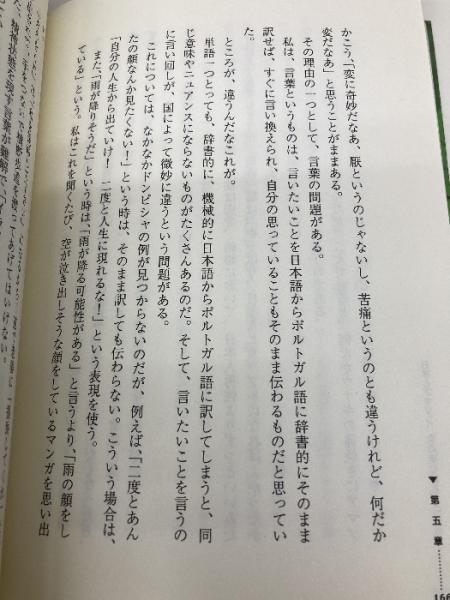 かこう、「変に奇妙だなあ、厭というのじゃないし、苦痛というのとも違うけれど、何だか
変だなあ」と思うことがままある。
その理由の一つとして、言葉の問題がある。
私は、言葉というものは、言いたいことを日本語からポルトガル語に辞書的にそのまま
訳せば、すぐに言い換えられ、自分の思っていることもそのまま伝わるものだと思ってい
た。
ところが、違うんだなこれが。
単語一つとっても、辞書的に、機械的に日本語からポルトガル語に訳してしまうと、同
じ意味やニュアンスにならないものがたくさんあるのだ。そして、言いたいことを言うの
に言い回しが、国によって微妙に違うという問題がある。
これについては、なかなかドンピシャの例が見つからないのだが、例えば、「二度とあん
たの顔なんか見たくない!」という時は、そのまま訳しても伝わらない。こういう場合は、
「自分の人生から出ていけ! 二度と人生に現れるな!」という表現を使う。
また、「雨が降りそうだ」という時は、「雨が降る可能性がある」と言うより、「雨の顔をし
ている」という。私はこれを聞くたび、空が泣き出しそうな顔をしているマンガを思い出
▼第五章
166